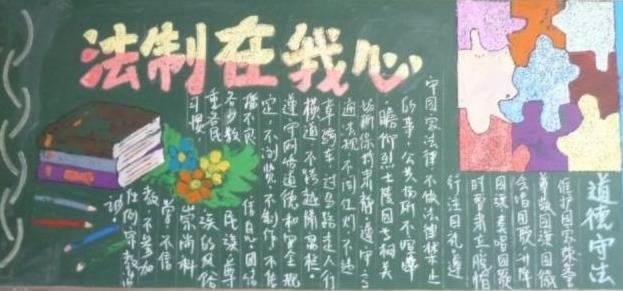 法制在我心
道德守法
维护国家荣誉
尊敬国旗国徽
会唱国歌、升降
国旗、奏唱国歌
时要肃立、脱帽
行注目礼,遵
守国家法律不做法律禁止
的事,公共场所不喧哗
瞻仰烈士陵园等相关
场所保持肃静,遵守交
通法规,不闯红灯,不违
章骑车,过马路走人行
横道,不跨越隔离栏。
遵守网络道德和安全规
定,不浏览、不制作、不传
播不良信息,团结
各少数民族,尊
重各民族的风俗
习惯,崇尚科
学,不信
教,不参加
任何宗教活